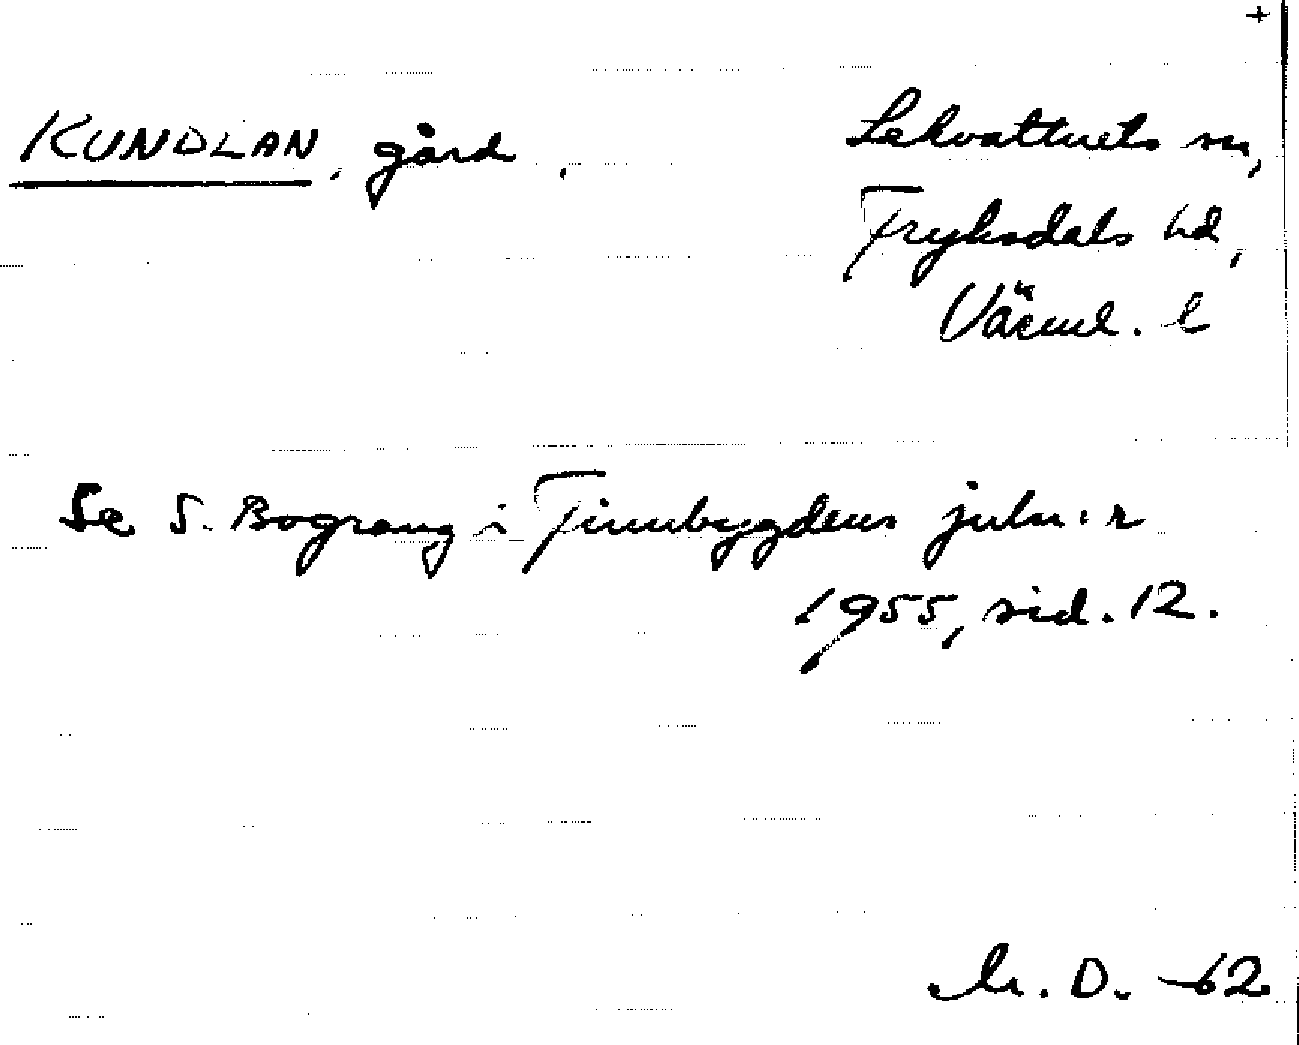 +
KUNDLAN, gård, Lekvattnets sn,
Fryksdals hd,
Värml. l
Se S. Bograng i Finnbygdens juln:r
1955, sid. 12.
M. D. -62